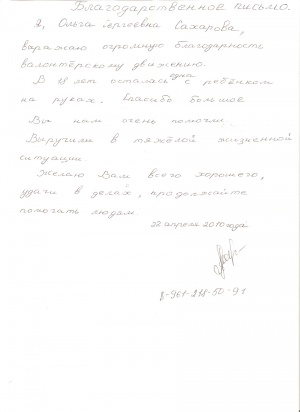 Благодарственное письмо.
Я, Ольга Сергеевна Сахарова,
выражаю огромную благодарность
волонтёрскому движению.
В 18 лет осталась одна с ребёнком
на руках. Спасибо большое
Вы нам очень помогли.
Выручили в тяжёлой жизненной
ситуации.
Желаю Вам всего хорошего,
удачи в делах, продолжайте
помогать людям.
22 апреля 2010 года
8-961-278-50-91